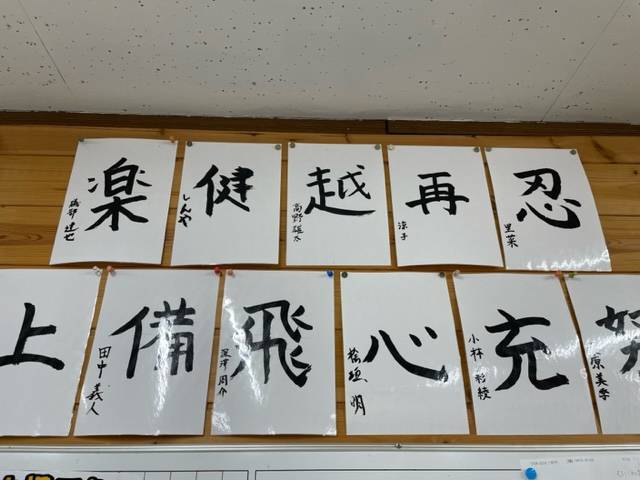 楽
磯部 達也
健
しんや
越
高野 雄太
再
涼子
忍
里菜
上
備
田中 義人
飛
深澤 周介
心
桧垣 明
充
小林 彩綾
努
原 美幸